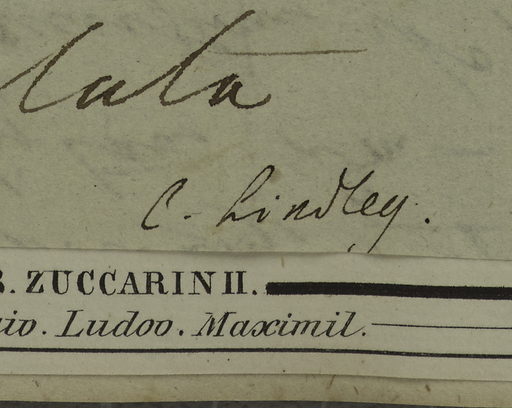 lata
C. Lindley.
B. ZUCCARINII.
io. Ludov. Maximil.